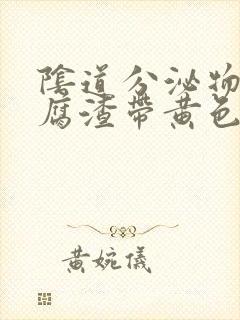 陰道分泌物
腐渣帶黃色
黃婉儀